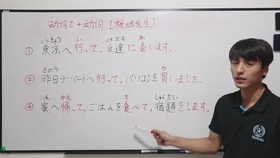 动词て + 动词 [相继发生]
① 東京へ行って、友達に会います。
② 昨日デパートへ行って、パソコンを買いました。
③ 家へ帰って、ごはんを食べて、宿題をします。